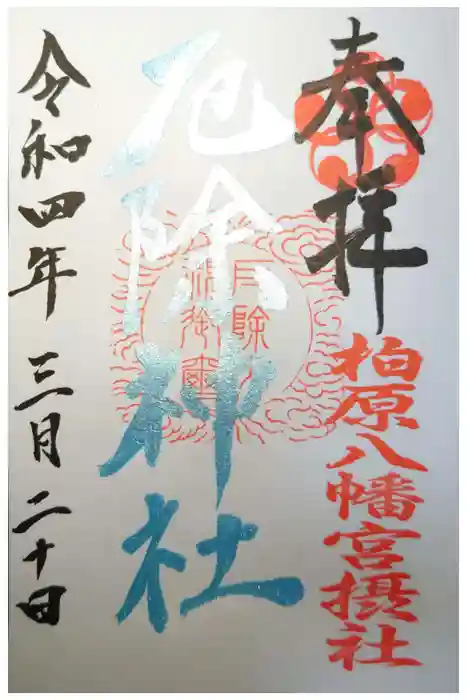 奉拝
柏原八幡宮摂社
厄除神社
令和四年三月二十日